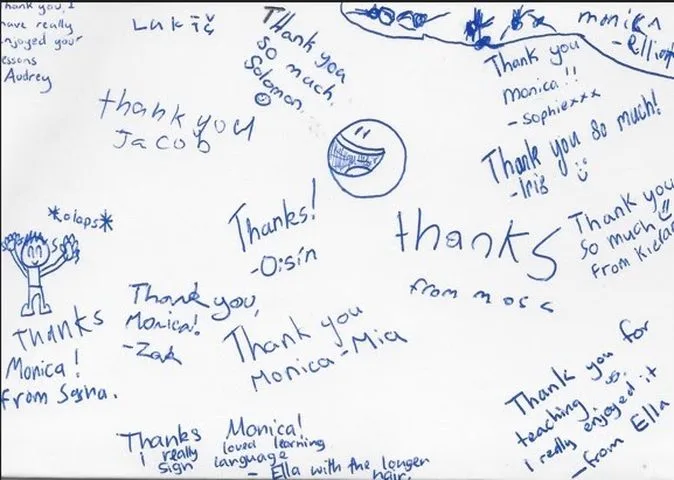 Thank you, I
have really
enjoyed your
lessons
Audrey
Thank you
so much.
Solomon.
monika
-Elliott
Thank you
monica!!
-Sophiexxx
thank you
Jacob
Thank you so much!
-Iris
Thanks!
-Oisín
thanks
from
Thank you
so much
from Kieran
*claps*
Thanks
Monica!
from Sasha.
Thank you,
Monica!
-Zak
Thank you
Monica-Mia
Thank you for
teaching us.
I really enjoyed it
-from Ella
Thanks Monica!
I really loved learning
sign language
- Ella with the longer
hair.